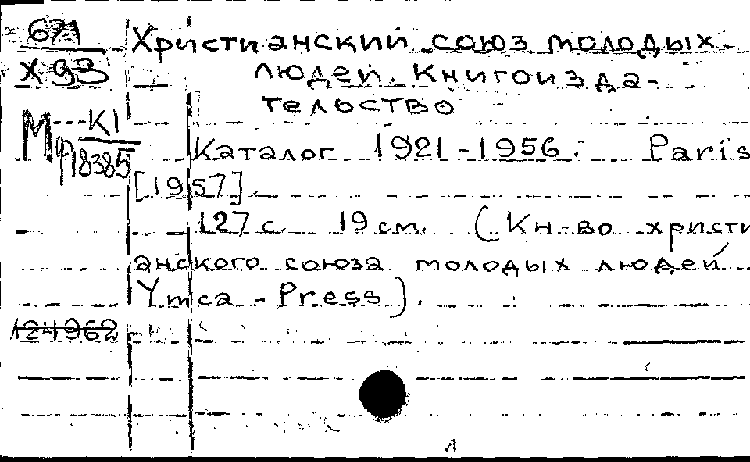 671
Х 93
Христианский союз молодых
людей. Книгоизда-
тельство
М К1
φ18385
Каталог 1921-1956. Paris
[1957].
127 с. 19 см. (Кн-во христи
анского союза молодых людей
Ymca-Press).
124962